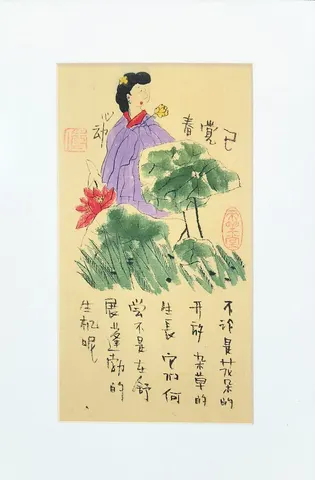 已觉春心动
不论是花朵的
开放 杂草的
生长 它们何
尝不是在舒
展蓬勃的
生机呢